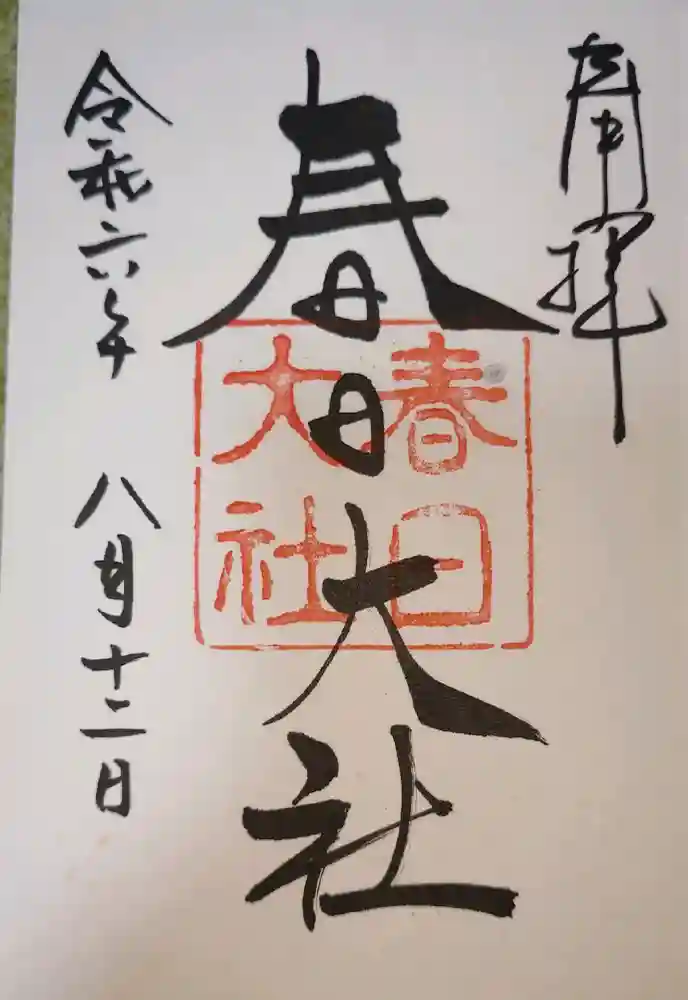 奉拝
春日大社
春日
大社
令和六年
八月十二日